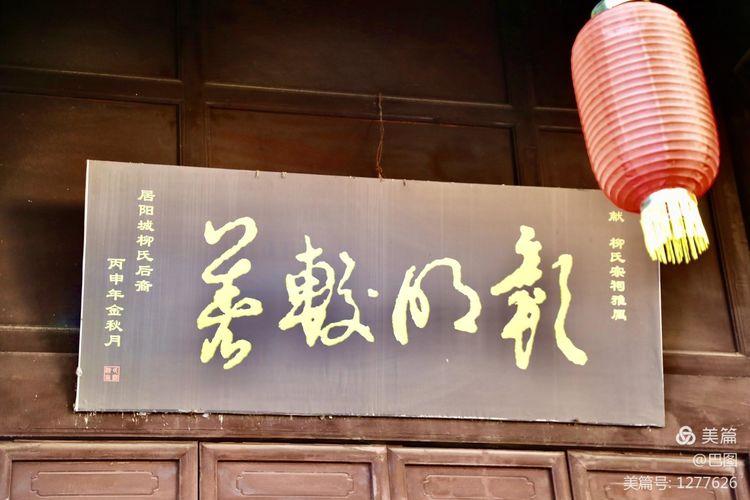 献 柳氏宗祠雅属
彰明較著
居阳城柳氏后裔
丙申年金秋月
美篇
@巴图
美篇号: 1277626